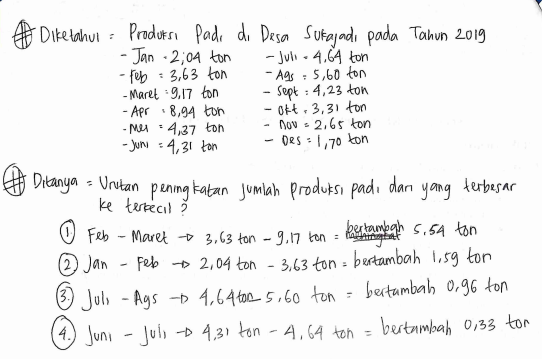 Diketahui = Produksi Padi di Desa Sukajadi pada Tahun 2019
- Jan = 2,04 ton - Juli = 4,64 ton
- Feb = 3,63 ton - Ags = 5,60 ton
- Maret = 9,17 ton - Sept = 4,23 ton
- Apr = 8,94 ton - Okt = 3,31 ton
- Mei = 4,37 ton - Nov = 2,65 ton
- Juni = 4,31 ton - Des = 1,70 ton
Ditanya = Urutan peningkatan jumlah produksi padi dari yang terbesar
ke terkecil ?
1 Feb - Maret → 3,63 ton - 9,17 ton = bertambah 5,54 ton
2. Jan - Feb → 2,04 ton - 3,63 ton = bertambah 1,59 ton
3. Juli - Ags → 4,64 ton - 5,60 ton = bertambah 0,96 ton
4. Juni - Juli → 4,31 ton - 4,64 ton = bertambah 0,33 ton